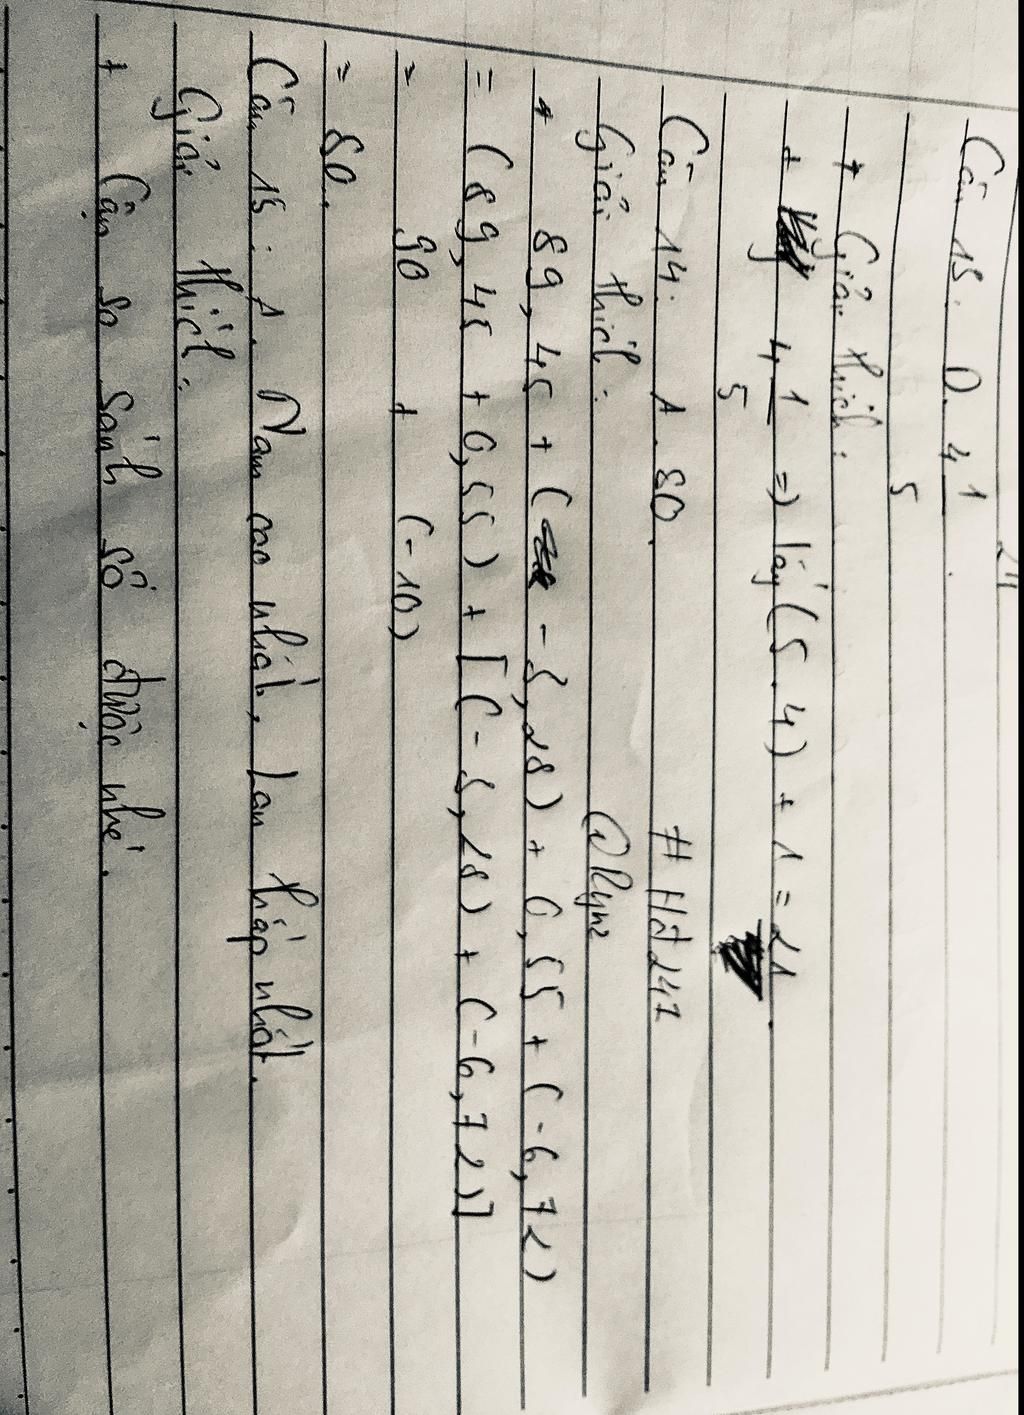 Câu 13: D. 4 1/5.
+ Giải thích:
+ 4 1/5 => lấy (5.4) + 1 = 21.
Câu 14: A. 80. # HĐ247
Giải thích: @Rynz
* 89,45 + (-3,28) + 0,55 + (-6,72)
= (89,45 + 0,55) + [(-3,28) + (-6,72)]
= 90 + (-10)
= 80.
Câu 15: A. Nam cao nhất, Lan thấp nhất.
Giải thích:
+ Cậu so sánh số được nhé.